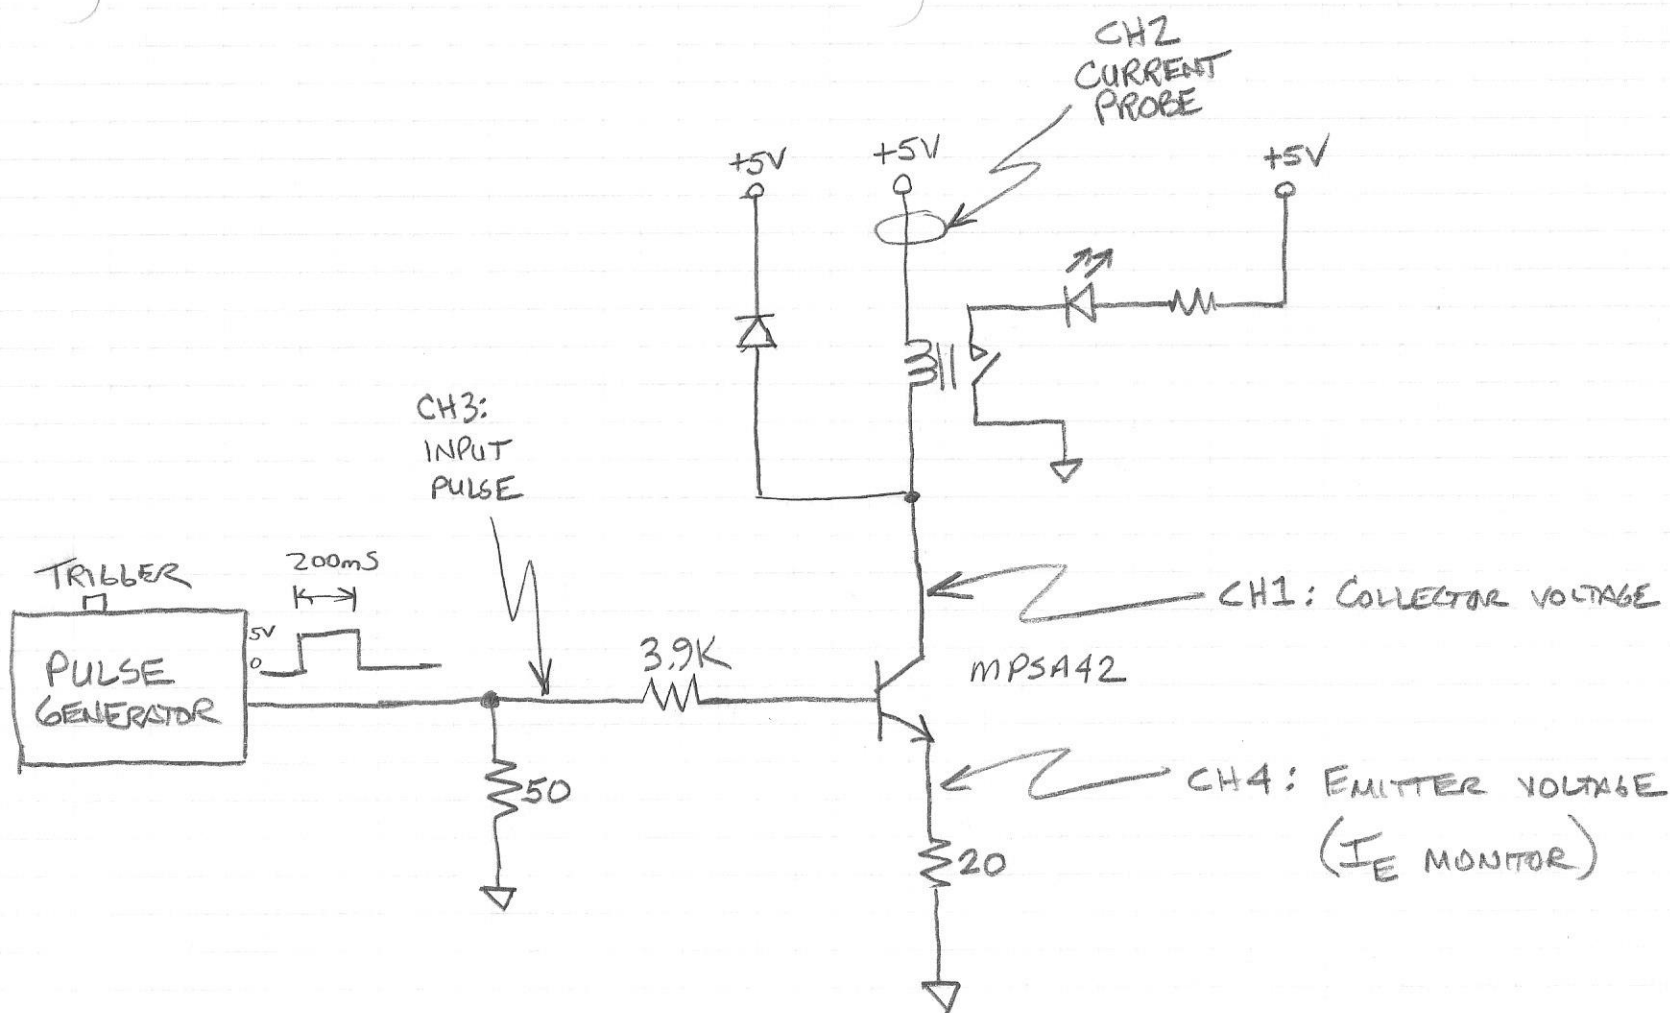 CH2
CURRENT
PROBE
+5V
+5V
+5V
CH3:
INPUT
PULSE
TRIGGER
200mS
5V
0
PULSE
GENERATOR
3.9K
50
MPSA42
CH1: COLLECTOR VOLTAGE
CH4: EMITTER VOLTAGE
(IE MONITOR)
20